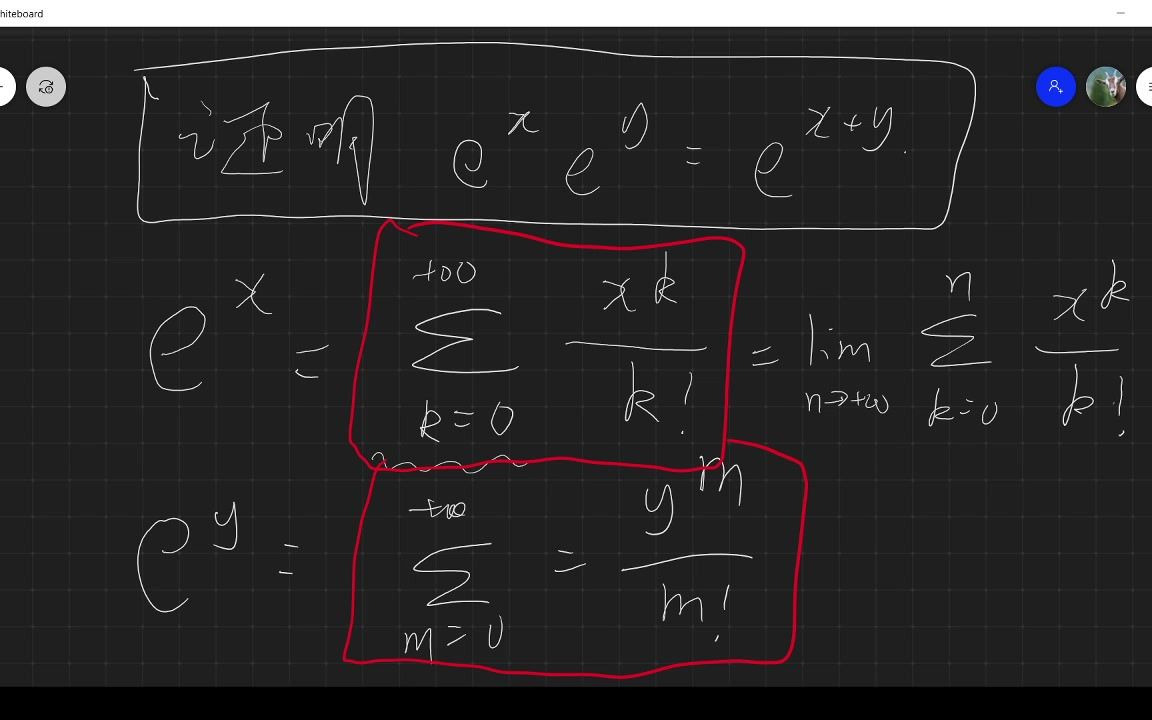 hiteboard
证明 e^x e^y = e^{x+y}.
e^x = \sum_{k=0}^{+∞} \frac{x^k}{k!} = \lim_{n→+∞} \sum_{k=0}^{n} \frac{x^k}{k!}
e^y = \sum_{m=0}^{+∞} = \frac{y^m}{m!}